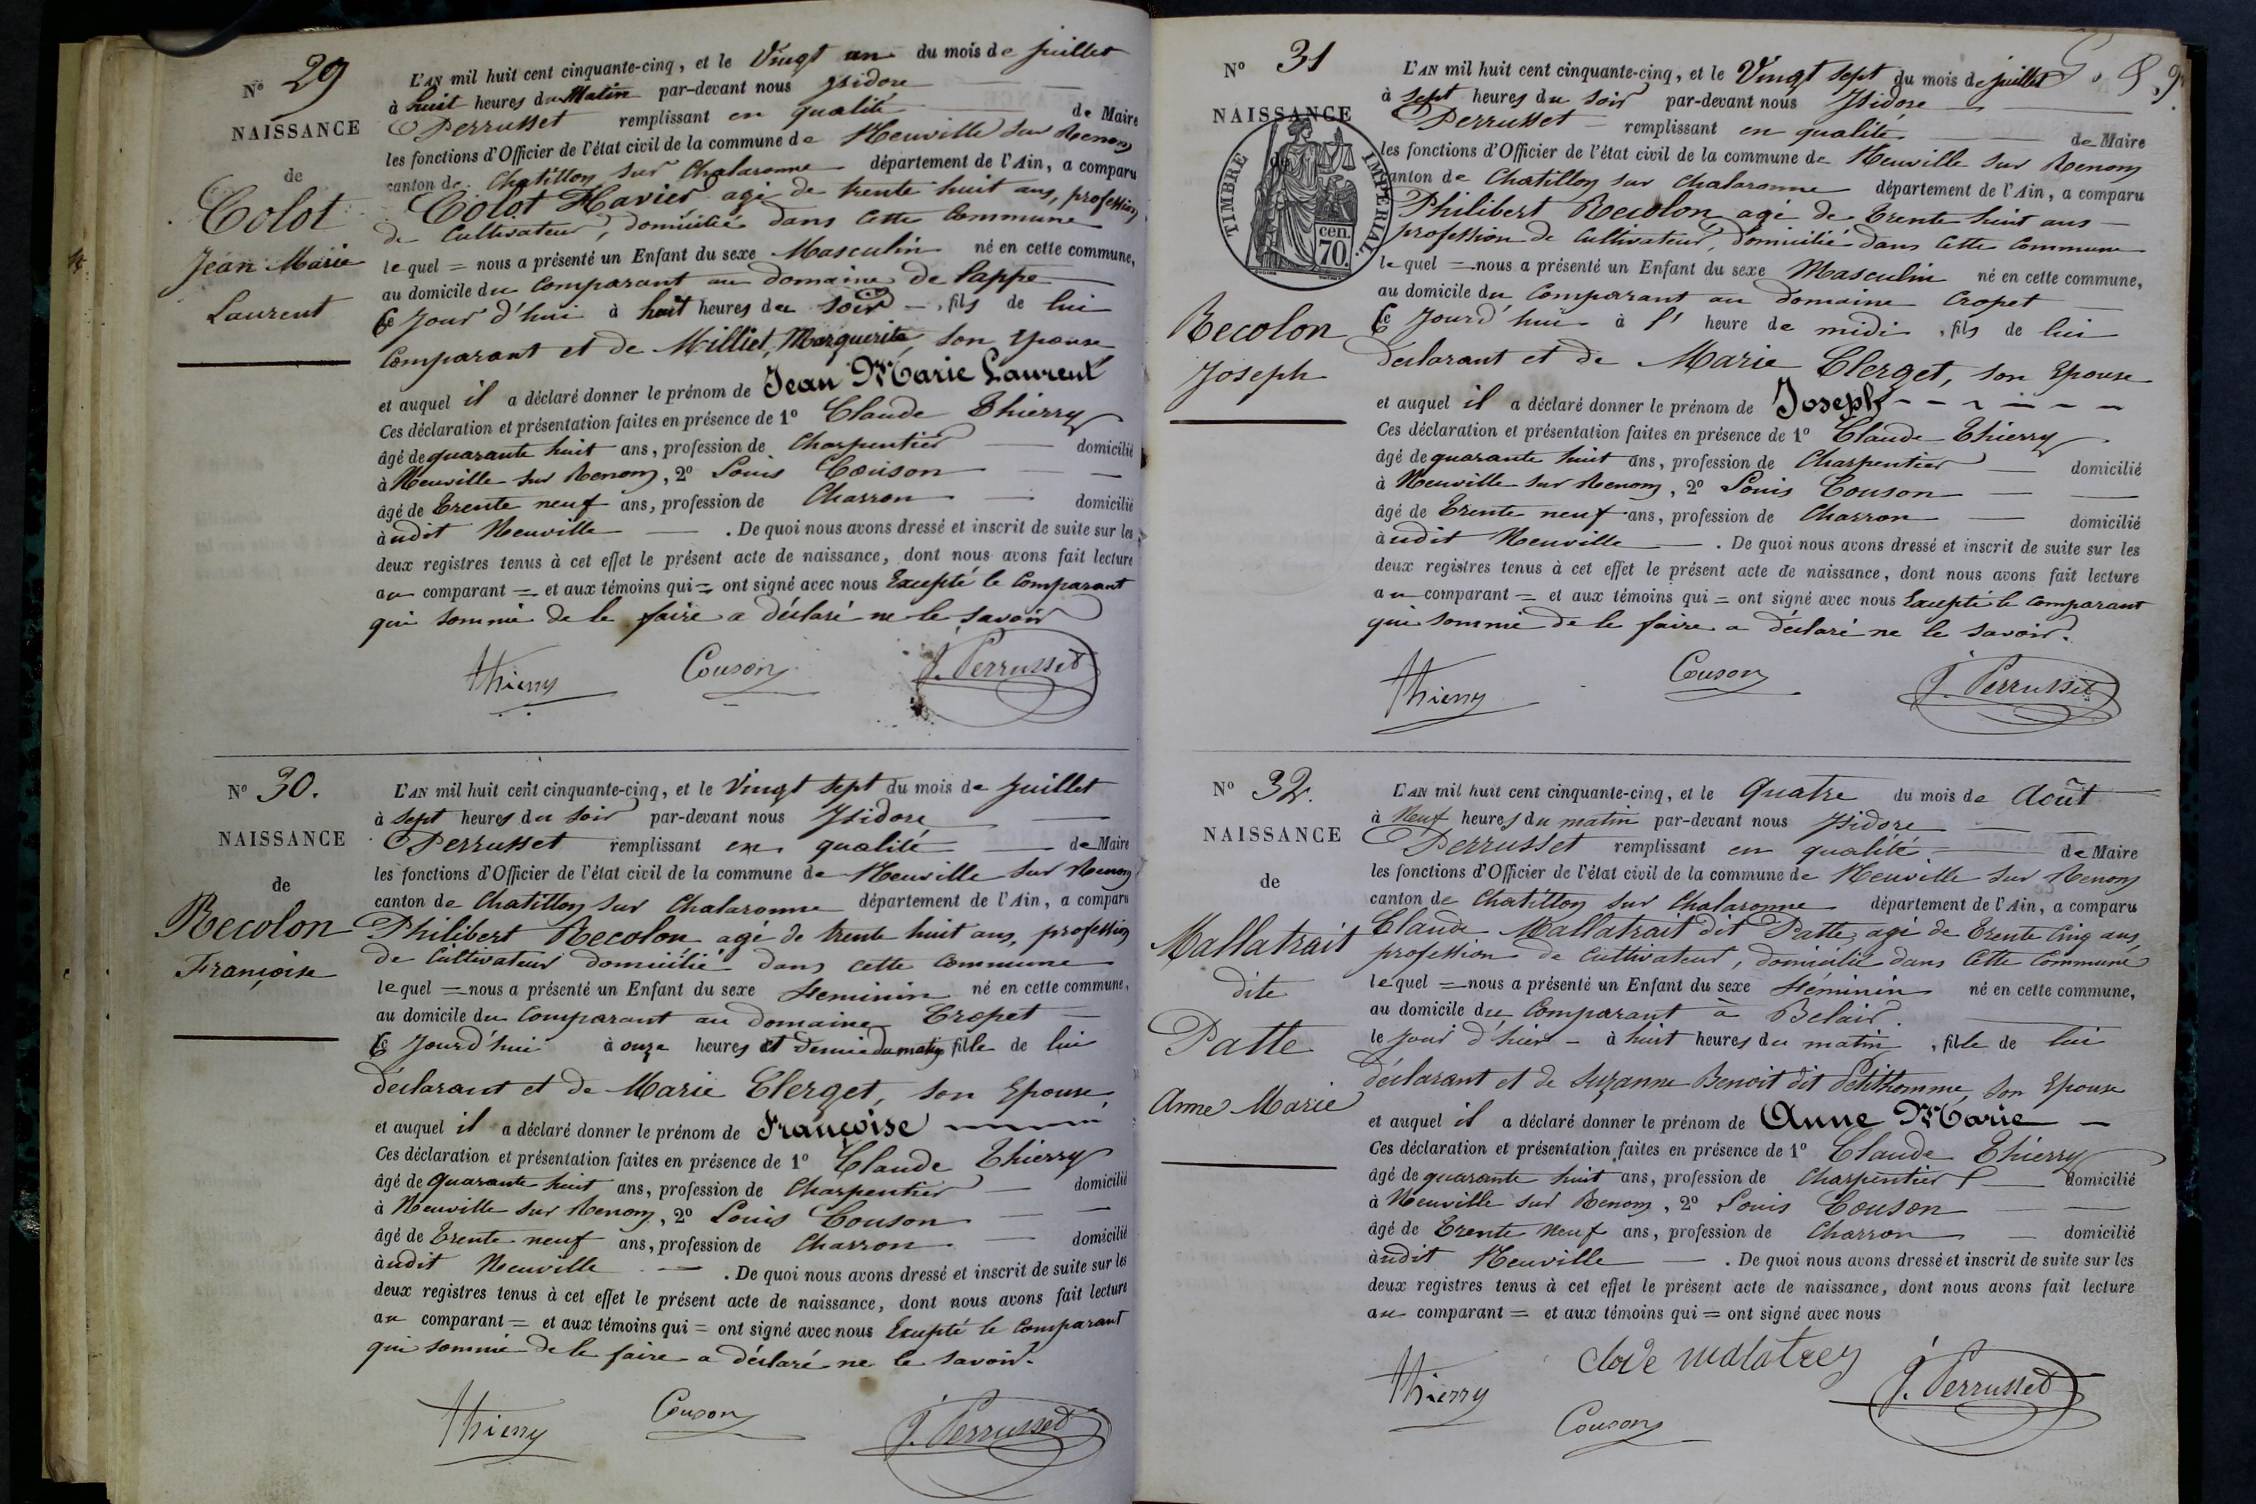 Nº 29
NAISSANCE
de
Colot
Jean Marie
Laurent
L'AN mil huit cent cinquante-cinq, et le Vingt un du mois de juillet
à huit heures du Matin par-devant nous Isidore
Perrusset remplissant en qualité de Maire
les fonctions d'Officier de l'état civil de la commune de Neuville sur Renom
canton de Chatillon sur Chalaronne département de l'Ain, a comparu
Colot Xavier agé de trente huit ans, profession
de Cultivateur, domicilié dans cette Commune
lequel = nous a présenté un Enfant du sexe Masculin né en cette commune,
au domicile du Comparant au domaine de Lappe
Ce Jour d'hui à huit heures du soir, fils de lui
Comparant et de Milliet, Marguerite, son épouse
et auquel il a déclaré donner le prénom de Jean Marie Laurent
Ces déclaration et présentation faites en présence de 1º Claude Thierry
âgé de quarante huit ans, profession de Charpentier domicilié
à Neuville sur Renom, 2º Louis Couson
âgé de Trente neuf ans, profession de Charron domicilié
àudit Neuville . De quoi nous avons dressé et inscrit de suite sur les
deux registres tenus à cet effet le présent acte de naissance, dont nous avons fait lecture
au comparant = et aux témoins qui = ont signé avec nous Excepté le Comparant
qui sommé de le faire a déclaré ne le savoir
Thierry Couson J. Perrusset
Nº 30.
NAISSANCE
de
Recolon
Françoise
L'AN mil huit cent cinquante-cinq, et le Vingt sept du mois de Juillet
à sept heures du soir par-devant nous Isidore
Perrusset remplissant en qualité de Maire
les fonctions d'Officier de l'état civil de la commune de Neuville sur Renom
canton de Chatillon sur Chalaronne département de l'Ain, a comparu
Philibert Recolon agé de trente huit ans, profession
de Cultivateur domicilié dans cette Commune
lequel = nous a présenté un Enfant du sexe Feminin né en cette commune,
au domicile du Comparant au domaine Cropet
Ce Jourd'hui à onze heures et Demie du matin fille de lui
déclarant et de Marie Clerget, son Epouse,
et auquel il a déclaré donner le prénom de Françoise
Ces déclaration et présentation faites en présence de 1º Claude Thierry
âgé de quarante huit ans, profession de Charpentier domicilié
à Neuville sur Renom, 2º Louis Couson
âgé de Trente neuf ans, profession de Charron domicilié
àudit Neuville . De quoi nous avons dressé et inscrit de suite sur les
deux registres tenus à cet effet le présent acte de naissance, dont nous avons fait lecture
au comparant = et aux témoins qui = ont signé avec nous Excepté le Comparant
qui sommé de le faire a déclaré ne le savoir.
Thierry Couson J. Perrusset
Nº 31
NAISSANCE
de
TIMBRE IMPÉRIAL.
cen.
70.
Recolon
Joseph
L'AN mil huit cent cinquante-cinq, et le Vingt sept du mois de juillet
à sept heures du soir par-devant nous Isidore
Perrusset remplissant en qualité de Maire
les fonctions d'Officier de l'état civil de la commune de Neuville sur Renom
canton de Chatillon sur Chalaronne département de l'Ain, a comparu
Philibert Recolon agé de Trente huit ans
profession de Cultivateur, domicilié dans cette commune
lequel = nous a présenté un Enfant du sexe Masculin né en cette commune,
au domicile du Comparant au domaine Cropet
Ce Jourd'hui à l' heure de midi, fils de lui
déclarant et de Marie Clerget, son Epouse
et auquel il a déclaré donner le prénom de Joseph
Ces déclaration et présentation faites en présence de 1º Claude Thierry
âgé de quarante huit ans, profession de Charpentier domicilié
à Neuville sur Renom, 2º Louis Couson
âgé de Trente neuf ans, profession de Charron domicilié
àudit Neuville . De quoi nous avons dressé et inscrit de suite sur les
deux registres tenus à cet effet le présent acte de naissance, dont nous avons fait lecture
au comparant = et aux témoins qui = ont signé avec nous Excepté le Comparant
qui sommé de le faire a déclaré ne le savoir.
Thierry Couson J. Perrusset
Nº 32.
NAISSANCE
de
Mallatrait
dite
Patte
Anne Marie
L'AN mil huit cent cinquante-cinq, et le Quatre du mois de Août
à Neuf heures du matin par-devant nous Isidore
Perrusset remplissant en qualité de Maire
les fonctions d'Officier de l'état civil de la commune de Neuville sur Renom
canton de Chatillon sur Chalaronne département de l'Ain, a comparu
Claude Mallatrait dit Patte, agé de Trente Cinq ans,
profession de cultivateur, domicilié dans Cette Commune
lequel = nous a présenté un Enfant du sexe Féminin né en cette commune,
au domicile du Comparant à Belair.
le jour d'hier à huit heures du matin, fille de lui
déclarant et de Suzanne Benoit dit Petithomme, Son Epouse
et auquel il a déclaré donner le prénom de Anne Marie
Ces déclaration et présentation faites en présence de 1º Claude Thierry
âgé de quarante huit ans, profession de Charpentier domicilié
à Neuville sur Renom, 2º Louis Couson
âgé de Trente Neuf ans, profession de Charron domicilié
àudit Neuville . De quoi nous avons dressé et inscrit de suite sur les
deux registres tenus à cet effet le présent acte de naissance, dont nous avons fait lecture
au comparant = et aux témoins qui = ont signé avec nous
Thierry clode malatrey J. Perrusset
Couson